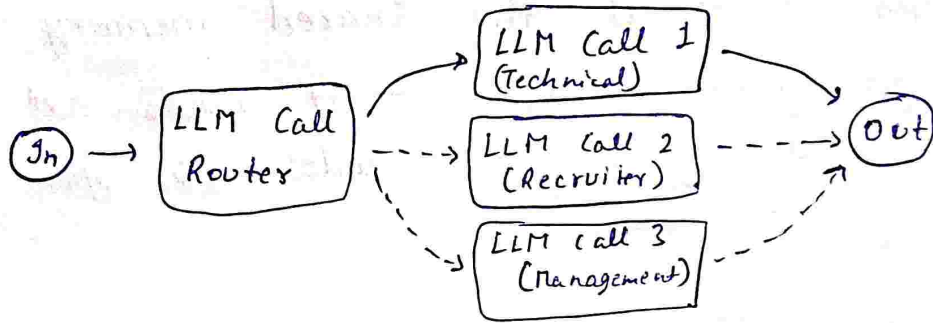 In
LLM Call
Router
LLM Call 1
(Technical)
LLM Call 2
(Recruiter)
LLM Call 3
(Management)
Out